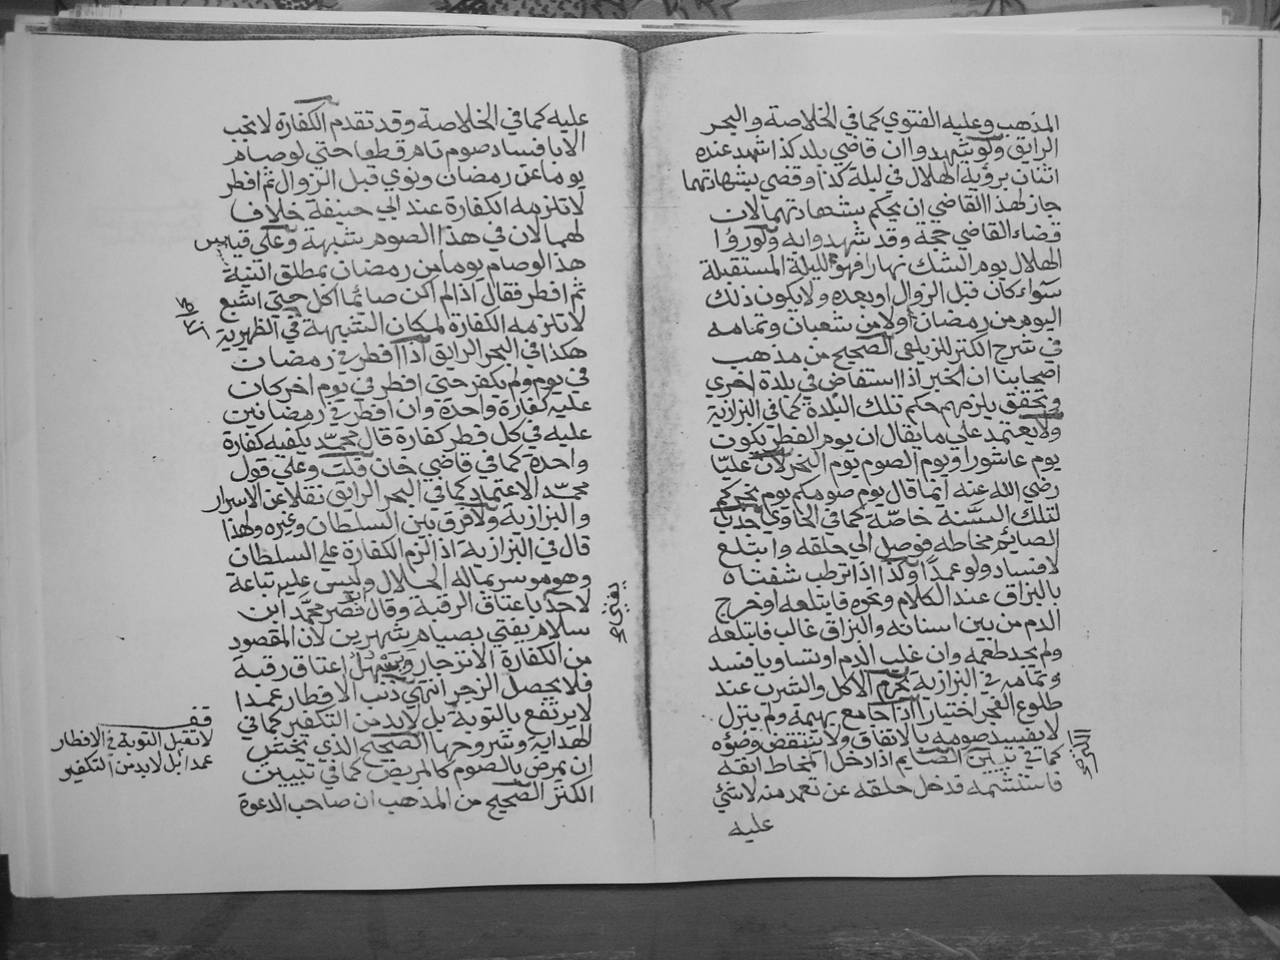 المذهب وعليه الفتوي كما في الخلاصة والبحر
الرايق ولو شهدوا ان قاضي بلد كذا شهد عنده
اثنان برؤية الهلال في ليلة كذا وقضي بشهادتهما
جاز لهذا القاضي ان يحكم بشهادتهما لان
قضاء القاضي حجة وقد شهدوا به ولو روا
الهلال يوم الشك نهارا فهو لليلة المستقبلة
سوآء كان قبل الزوال او بعده ولا يكون ذلك
اليوم من رمضان اولا من شعبان وتمامه
في شرح الكنز للزيلعي الصحيح من مذهب
اصحابنا ان الخبر اذا استفاض في بلدة اخري
وتحقق يلزمهم حكم تلك البلدة كما في البزازية
ولا يعتمد علي ما يقال ان يوم الفطر يكون
يوم عاشورا ويوم الصوم يوم النحر لان عليّا
رضي الله عنه انما قال يوم صومكم يوم نحركم
لتلك السّنة خاصّة كما في الحاوي جذب
الصائم مخاطه فوصل الي حلقه وابتلع
لا فساد ولو عمدا وكذا اذا ترطب شفتاه
بالبزاق عند الكلام ونحوه فابتلعه او خرج
الدم من بين اسنانه والبزاق غالب فابتلعه
ولم يجد طعمه وان غلب الدم او تساويا فسد
وتمامه في البزازية يحرم الاكل والشرب عند
طلوع الفجر اختيارا اذا جامع بهيمة ولم ينزل
لا يفسد صومه بالاتفاق ولا ينتقض وضؤه
كما في تبيين الصايم اذا دخل المخاط انفه
فاستشمه فدخل حلقه عن تعمد منه لا شئ
عليه
عليه كما في الخلاصة وقد تقدم الكفارة لا تجب
الا بافساد صوم تام قطعا حتي لو صام
يوما عن رمضان ونوي قبل الزوال ثم افطر
لا تلزمه الكفارة عند ابي حنيفة خلاف
لهما لان في هذا الصوم شبهة وعلي قياس
هذا لو صام يوما من رمضان بمطلق النية
ثم افطر فقال اذا لم اكن صائما آكل حتي اشبع
لا تلزمه الكفارة لمكان الشبهة في الظهيرية
هكذا في البحر الرايق اذا افطر في رمضان
في يوم ولم يكفر حتي افطر في يوم اخر كان
عليه كفارة واحدة وان افطر في رمضانين
عليه في كل فطر كفارة قال محمّد يكفيه كفارة
واحدة كما في قاضي خان قلت وعلي قول
محمّد الاعتماد كما في البحر الرايق نقلا عن الاسرار
والبزازية ولا فرق بين السلطان وغيره ولهذا
قال في البزازية اذا لزم الكفارة علي السلطان
وهو موسر بماله الحلال وليس عليه تباعة
لاحد يا عتاق الرقبة وقال نصر محمّد ابن
سلام يفتي بصيام شهرين لان المقصود
من الكفارة الانزجار ويسهل اعتاق رقبة
فلا يحصل الزجر انتهي ذنب الافطار عمدا
لا يرتفع بالتوبة بل لابد من التكفير كما في
الهداية وشروحها الصحيح الذي يخشي
ان يمرض بالصوم كالمريض كما في تبيين
الكنز الصحيح من المذهب ان صاحب الدعوة
قف
لا تقبل التوبة في الافطار
عمدا بل لابد من التكفير